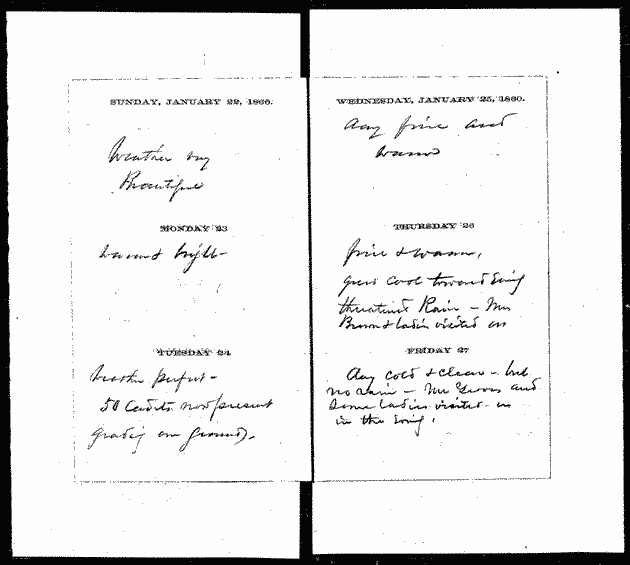 SUNDAY, JANUARY 22, 1860.
Weather very
Beautiful
MONDAY 23
warm & bright
TUESDAY 24
Weather perfect -
50 Cadets now present
grading on ground.
WEDNESDAY, JANUARY 25, 1860.
day fine and
warm
THURSDAY 26
fine & warm,
grew cool toward Evening
threatened Rain - Mrs
Brown & ladies visited us
FRIDAY 27
day cold & clear - but
no rain - Mr and
some ladies visited us
in the Evening.